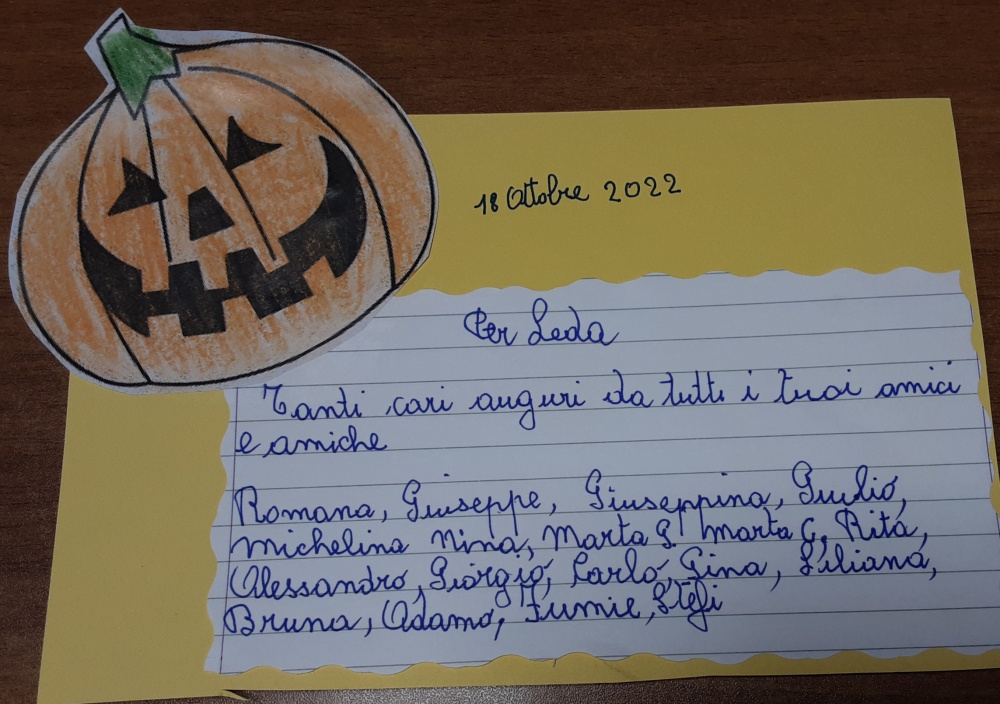 18 Ottobre 2022
Per Leda
Tanti cari auguri da tutti i tuoi amici
e amiche
Romana, Giuseppe, Giuseppina, Giulio,
Michelina Nina, Marta G. Marta C, Rita,
Alessandro, Giorgio, Carlo, Gina, Liliana,
Bruna, Adamo, Fumie, Stefi